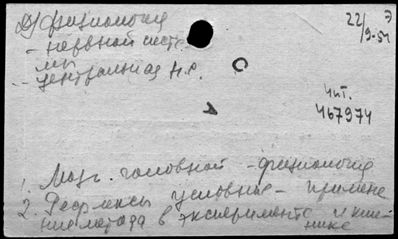 физиология
22/9-51
Э
- нервной систе
мы
- центральная н.с.
чит.
467974
1. Мозг головной - физиология
2. Рефлексы условные - примене
ние метода в эксперименте и кли
нике